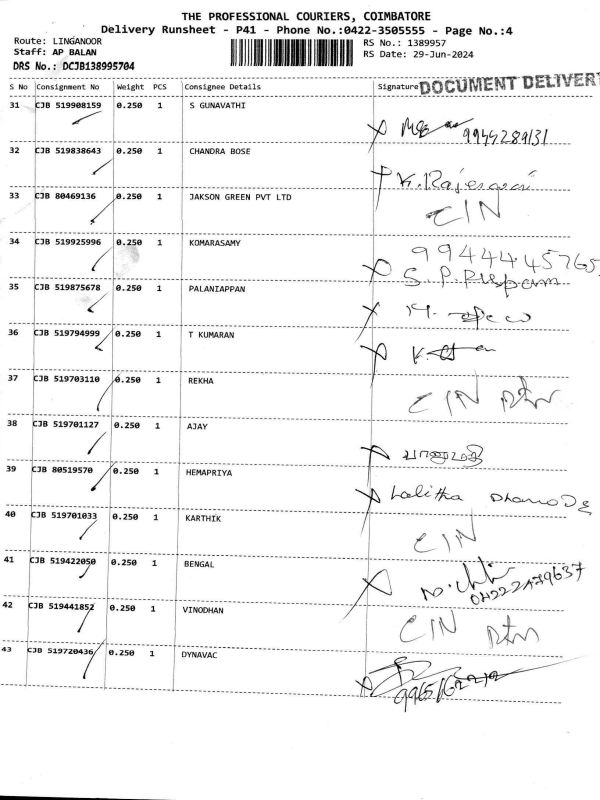 THE PROFESSIONAL COURIERS, COIMBATORE
Delivery Runsheet - P41 - Phone No.:0422-3505555 - Page No.:4
Route: LINGANOOR
Staff: AP BALAN
DRS No.: DCJB138995704
RS No.: 1389957
RS Date: 29-Jun-2024
S No Consignment No Weight PCS Consignee Details Signature DOCUMENT DELIVER
31 CJB 519908159 0.250 1 S GUNAVATHI
9944289131
32 CJB 519838643 0.250 1 CHANDRA BOSE
K. Rajeswari
33 CJB 80469136 0.250 1 JAKSON GREEN PVT LTD
C/N
34 CJB 519925996 0.250 1 KOMARASAMY
9944445765
S. P. Puspam
35 CJB 519875678 0.250 1 PALANIAPPAN
36 CJB 519794999 0.250 1 T KUMARAN
37 CJB 519703110 0.250 1 REKHA
C/N
38 CJB 519701127 0.250 1 AJAY
39 CJB 80519570 0.250 1 HEMAPRIYA
Lalitha
40 CJB 519701033 0.250 1 KARTHIK
C/N
41 CJB 519422050 0.250 1 BENGAL
42 CJB 519441852 0.250 1 VINODHAN
C/N
43 CJB 519720436 0.250 1 DYNAVAC